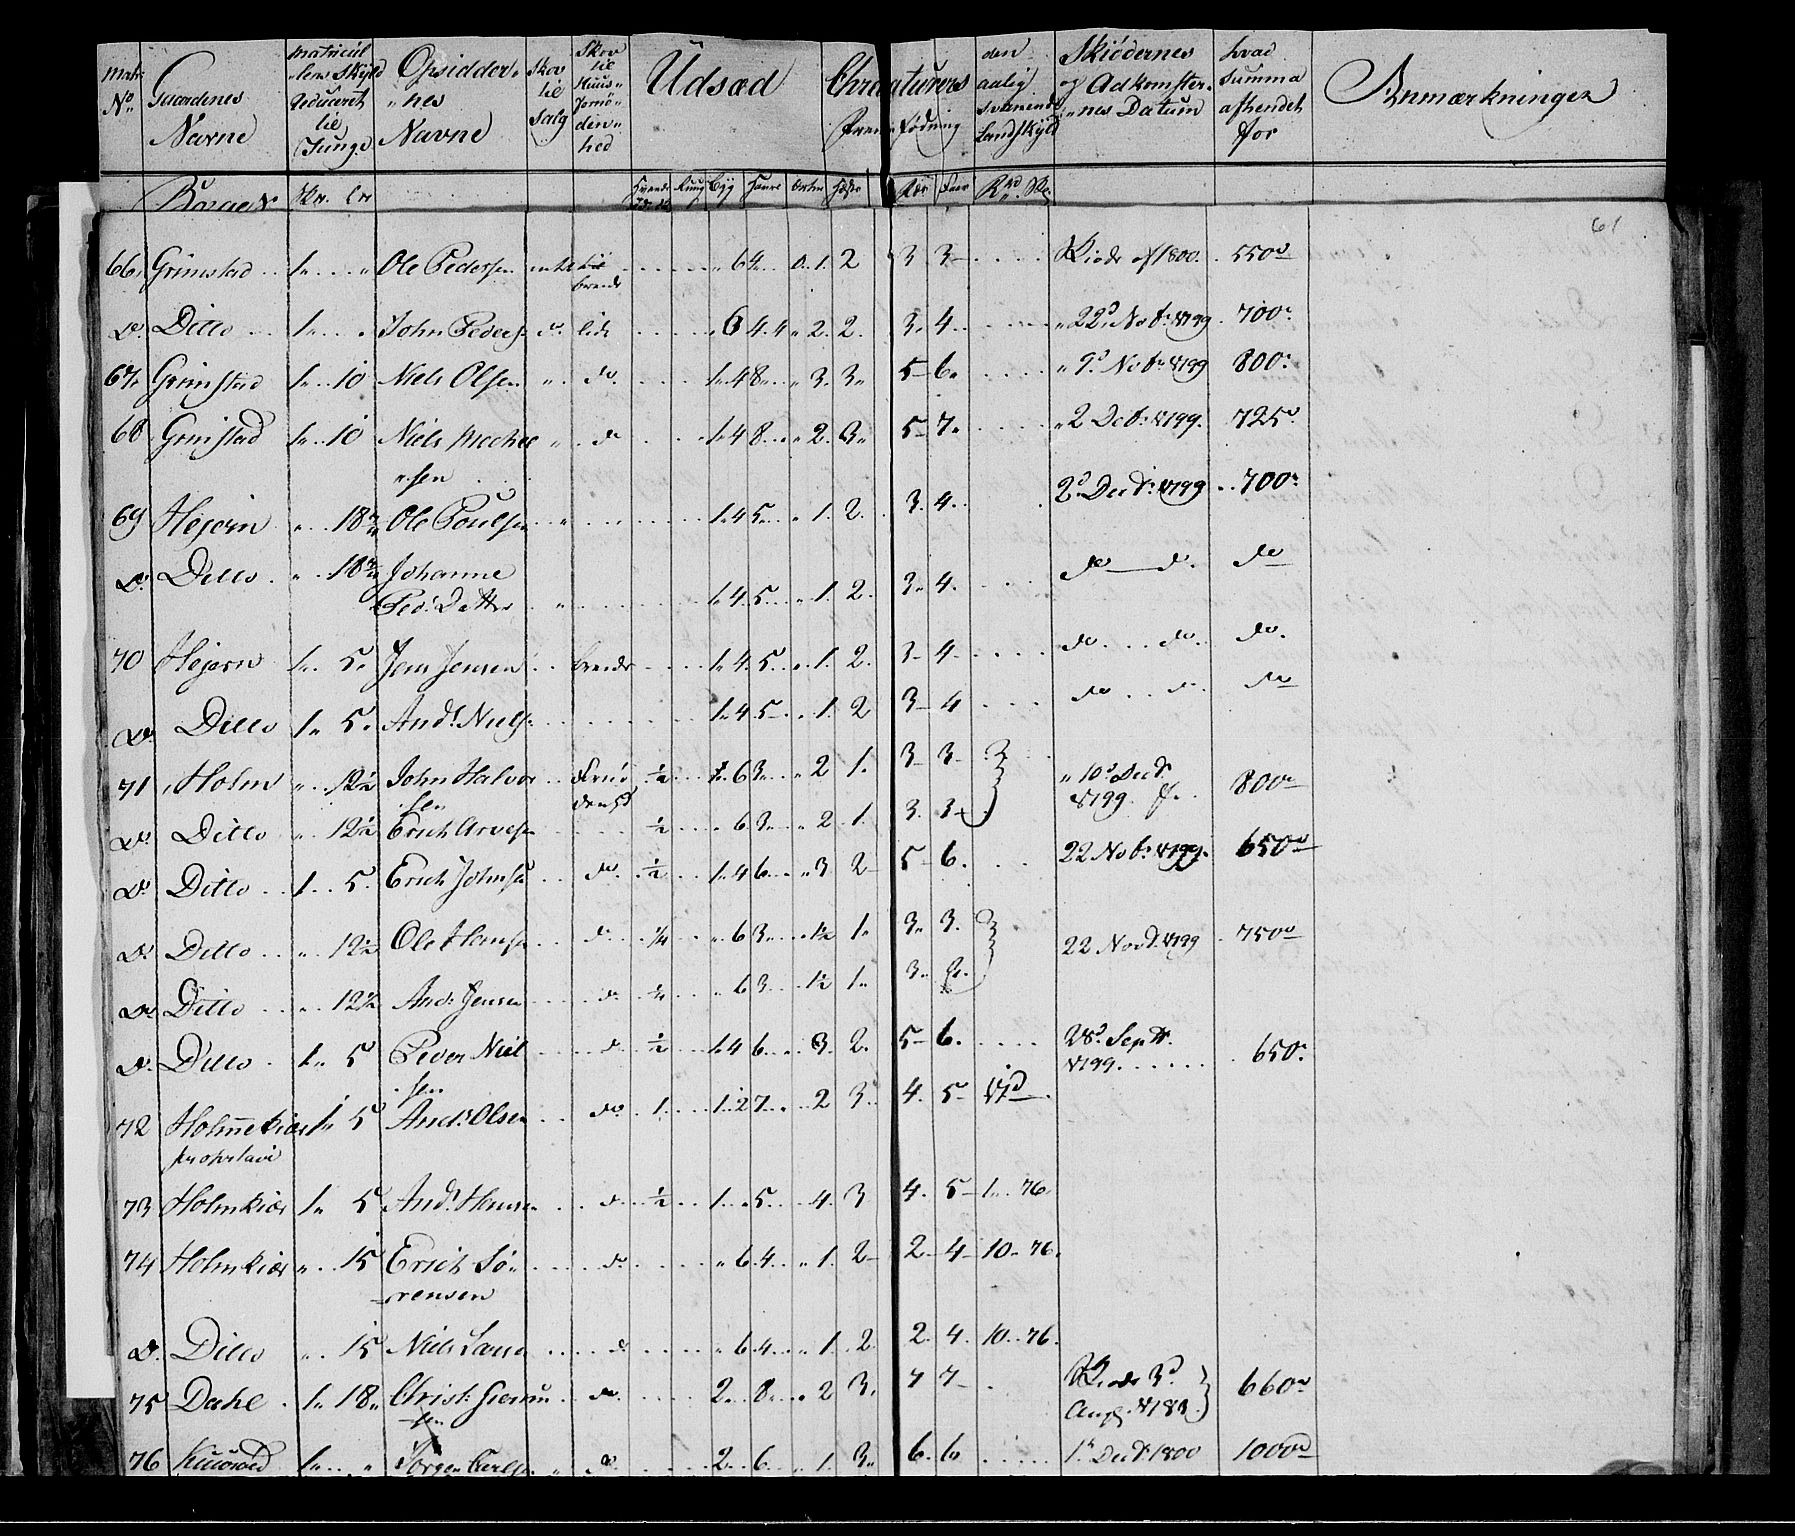 Matr: No
Gaardenes Navne
Matricul -lens Skyld reduceret til Tunge
Opsidder- nes Navne
Skov til Salg
Skov til Huus- fornø- den- hed
Udsæd
Chreaturers Fremfødning
den aarlig svarende Landskyld
Skiødernes og Adkomster- nes Datum
hvad Summa afhendet for
Anmærkninger
Byg Havre Rd Sk
61
66 Grimstad 1 " Ole Pedersen 6 4 0 1 2 3 3 Skiøde af 1800 550
Do Ditto 1 " John Peders do lidt 6 4 4 " 2 2 3 4 " 22 Nobr 1799 700
67 Grimstad 1 10 Niels Olsen " do 1 4 8 " 3 3 5 6 " 9 Nobr 1799 800
68 Grimstad 1 10 Niels Michel sen " do 1 4 8 " 2 3 5 7 " 2 Decbr 1799 725
69 Hejern " 18 Ole Poulsen " 1 4 5 " 1 2 3 4 2 Decbr 1799 700
Do Ditto " 18 Johanne Peds Datter " 1 4 5 " 1 2 3 4 do do do
70 Hejern 1 5 Jens Jensen brende 1 4 5 " 1 2 3 4 do do do
Do Ditto 1 5 Ands Niels 1 4 5 " 1 2 3 4 do do do
71 Holm " 12½ John Halvor sen ½ 6 3 " 2 1 3 3 " 10 Decbr 1799 800
Do Ditto " 12½ Erich Arvesen ½ " 6 3 " 2 1 3 3
Do Ditto 1 5 Erich Johnsen do ½ 1 4 6 " 3 2 5 6 22 Nobr 1799 650
Do Ditto " 12½ Ole Hansen do ¼ " 6 3 " 1½ 1 3 3 22 Novbr 1799 750
Do Ditto " 12½ Ands Jensen do ¼ " 6 3 1½ 1 3
Do Ditto 1 5 Peder Niel sen do ½ 1 4 6 3 2 5 6 28 Septbr 1799 650
72 Holmekiær 1 5 Ands Olsen do 1 1 2 7 2 3 4 5
73 Holmkiær 1 5 Ands Hansen do ½ 1 " 5 4 3 4 5 1 76
74 Holmkiær " 15 Erich Sø- rensen do " 6 4 " 1 2 2 4 10 76
Do Ditto " 15 Niels Larsen do " 6 4 " 1 2 2 4 10 76
75 Dahl 1 18 Christ: do 2 8 " 2 3 7 7 Skiøde 3 660
76 1 " Jørgen " do 2 6 " 1 3 6 6 1 Decbr 1800 1000